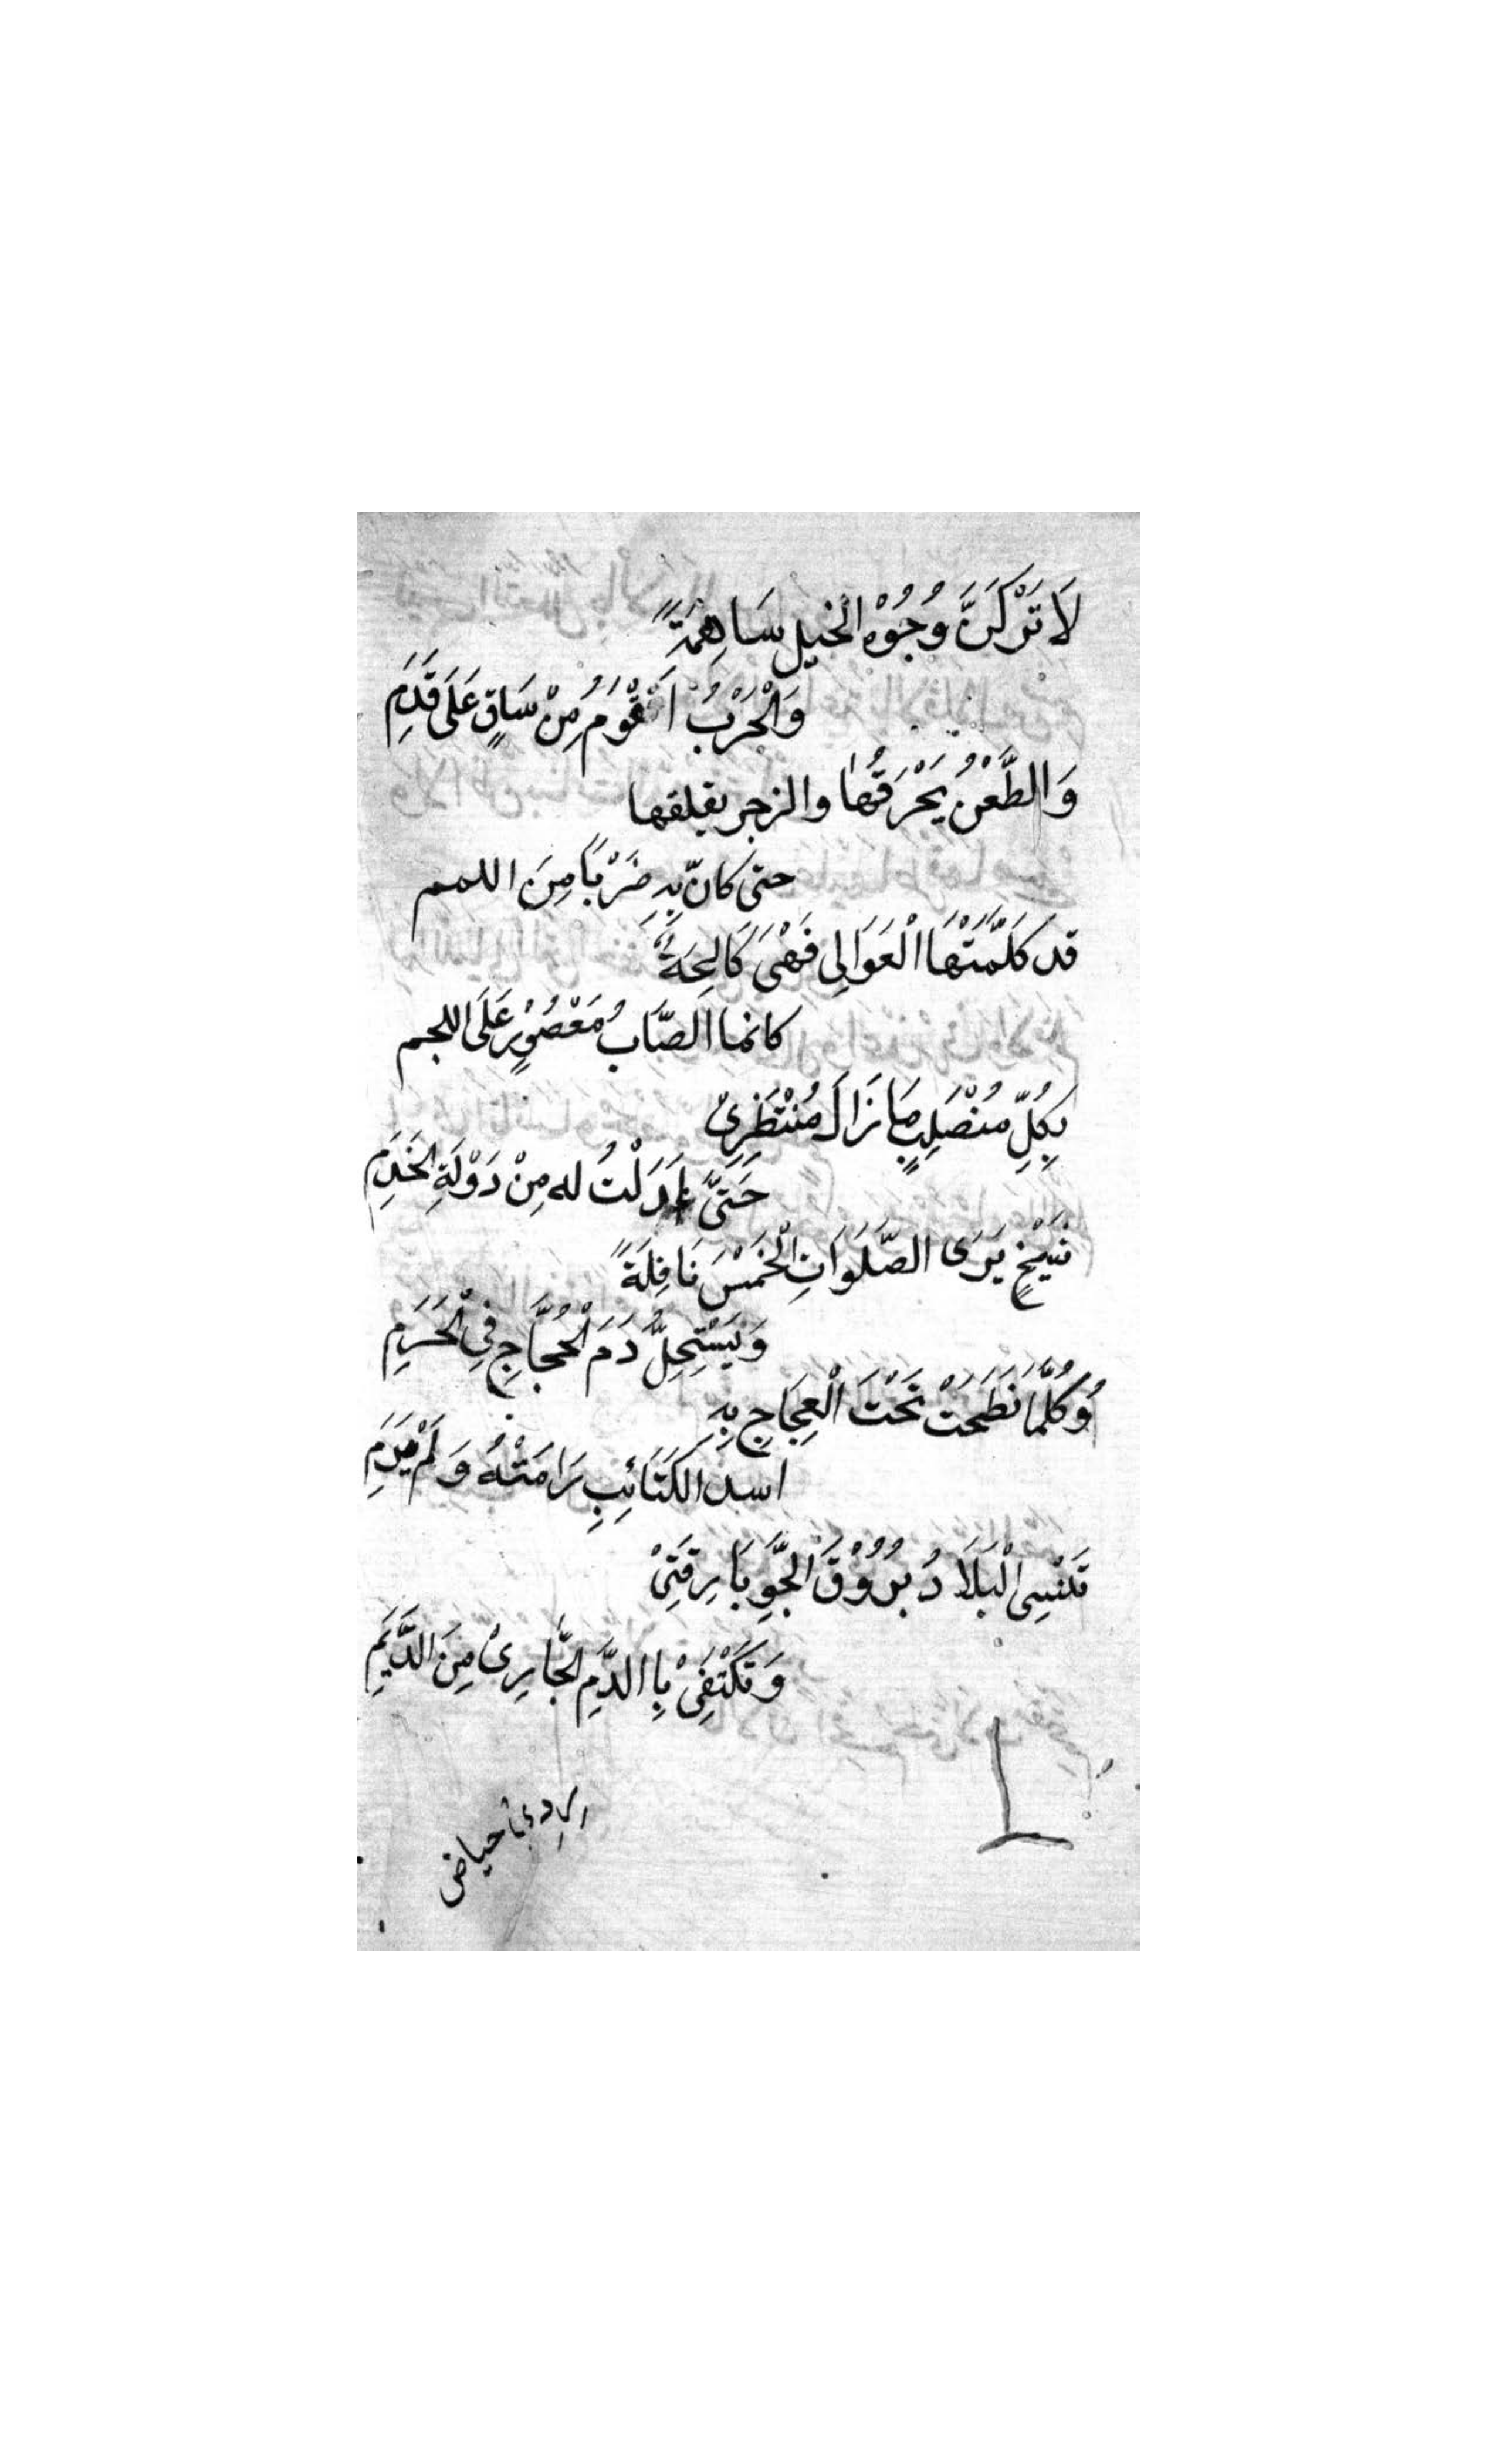 لَا تَرْكَنَّ وُجُوْهِ الخيل سَاهِمَةً
وَالْحَرْبُ اَقْوَمُ مِنْ سَاقٍ عَلَى قَدَمِ
وَالطَّعْنُ يَحْرَقُهَا والزجر يقلقها
حتى كانّ بِهِ ضَرْبًا مِنَ اللمم
قد كَلَّمَتْهَا الْعَوَالِى فَهْىَ كَالِحَةٌ
كانما الصَّابُ مَعْصُوْرٍ عَلَى اللجم
بِكُلِّ مُنْصَلِبٍ مَا زَالَ مُنْتَظِرِىْ
حَتَّى اَدَلْتُ له مِنْ دَوْلَةِ الخَدَمِ
شَيْخٍ يَرَى الصَّلَوَاتِ الْخَمْسَ نَافِلَةً
وَيَسْتَحِلُّ دَمَ الْحُجَّاجِ فِى الْحَرَمِ
وُكُلَّمَا نَطَحَتْ تَحْتَ الْعِجَاجِ بِهِ
اسد الكَتَائِبِ رَامَتْهُ وَلَمْ يَرَمِ
تَنْسِى الْبَلَادُ بُرُوْقَ الجَّوِ بَارِقَتِىْ
وَتَكْتَفِىْ بِاالدَّمِ الجَّارِىْ مِنَ الدِّيَمِ
حياض